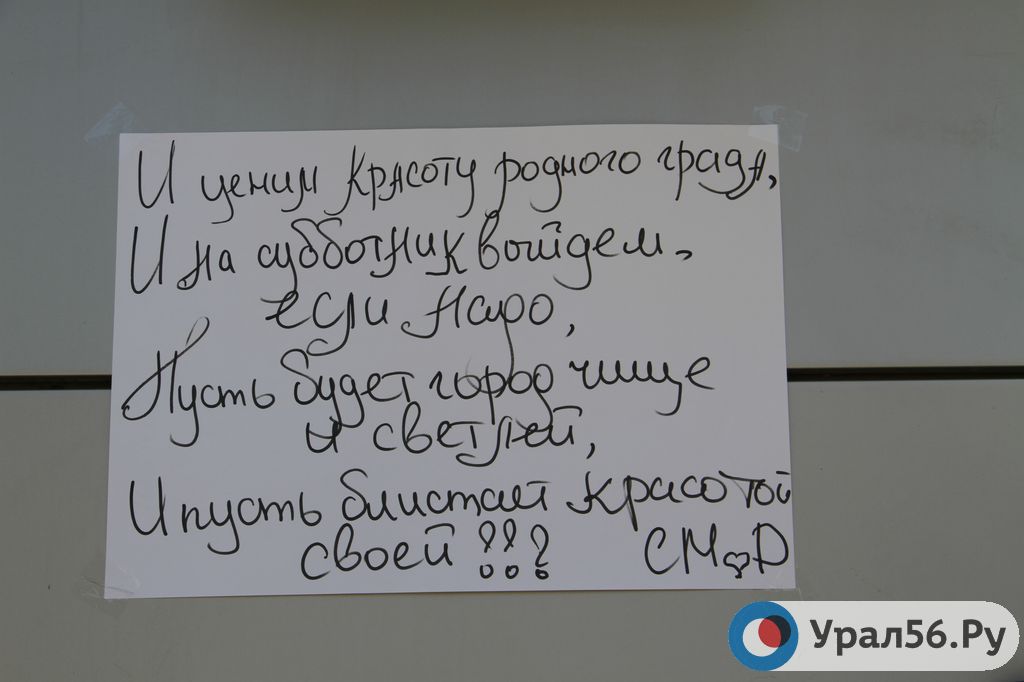 И ценим красоту родного града,
И на субботник выйдем,
если надо,
Пусть будет город чище
и светлей,
И пусть блистает красотой
своей!!!
СМ♡Д
Урал56.Ру